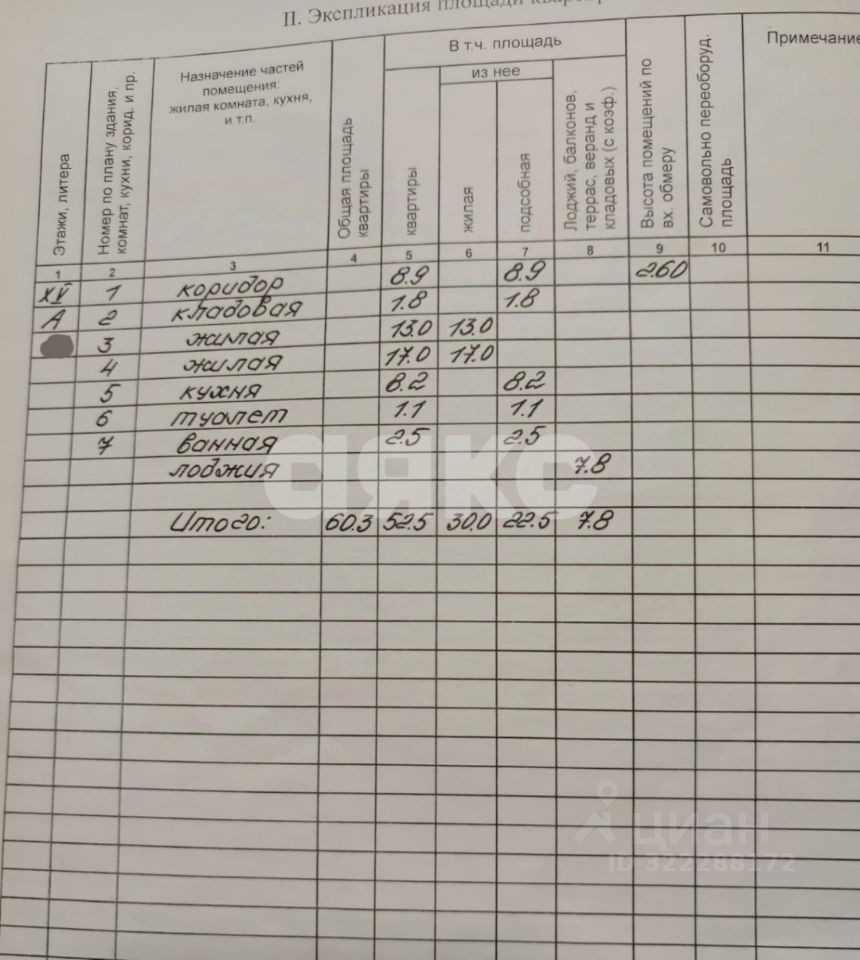 II. Экспликация площади
Этажи, литера
Номер по плану здания, комнат, кухни, корид. и пр.
Назначение частей
помещения:
жилая комната, кухня,
и т.п.
Общая площадь квартиры
В т.ч. площадь
квартиры
из нее
жилая
подсобная
Лоджий, балконов, террас, веранд и кладовых (с коэф.)
Высота помещений по вх. обмеру
Самовольно переоборуд. площадь
Примечание
1 2 3 4 5 6 7 8 9 10 11
XV 1 коридор 8.9 8.9 2.60
А 2 кладовая 1.8 1.8
3 жилая 13.0 13.0
4 жилая 17.0 17.0
5 кухня 8.2 8.2
6 туалет 1.1 1.1
7 ванная 2.5 2.5
лоджия 7.8
Итого: 60.3 52.5 30.0 22.5 7.8
аякс
циан
ID 322288172